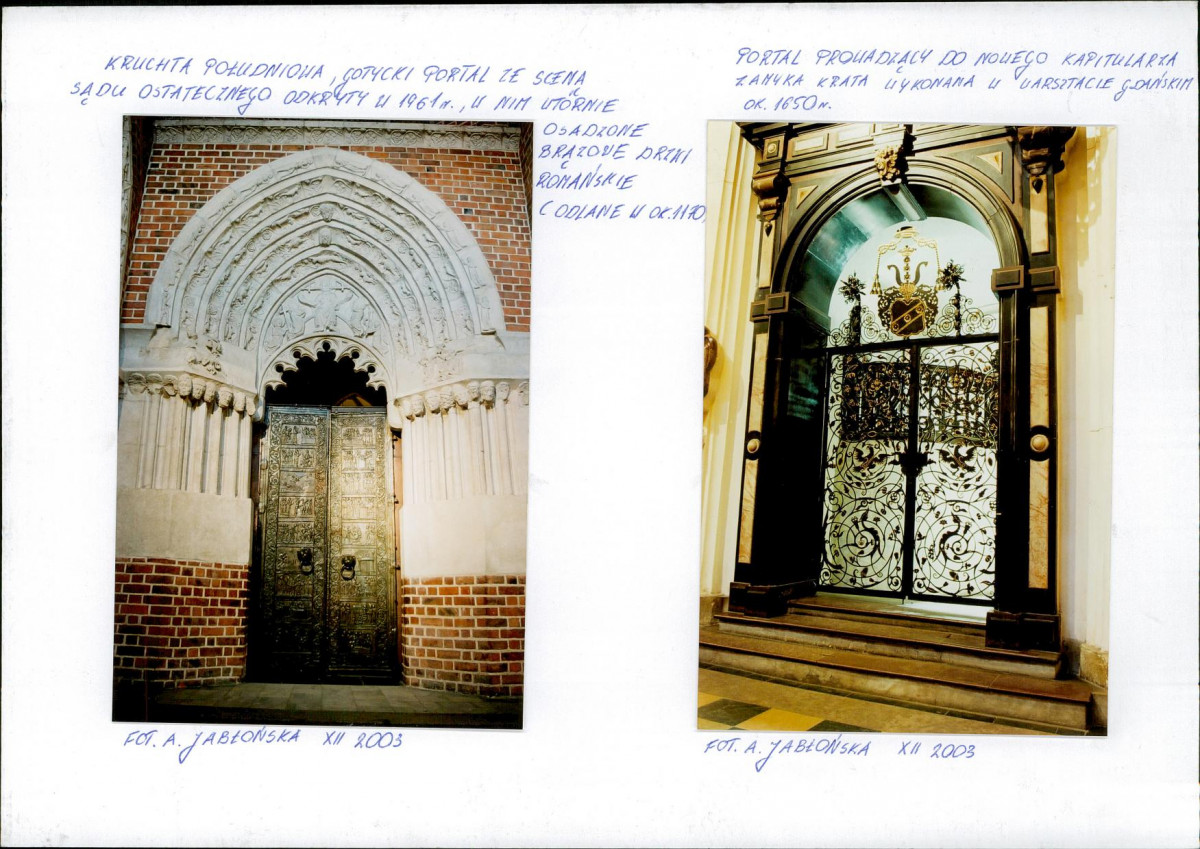 KRUCHTA POŁUDNIOWA, GOTYCKI PORTAL ZE SCENĄ
SĄDU OSTATECZNEGO ODKRYTY W 1961 r., W NIM WTÓRNIE
OSADZONE
BRĄZOWE DRZWI
ROMAŃSKIE
(ODLANE W OK. 1170)
FOT. A. JABŁOŃSKA XII 2003
PORTAL PROWADZĄCY DO NOWEGO KAPITULARZA
ZAMYKA KRATA WYKONANA W WARSZTACIE GDAŃSKIM
OK. 1650 r.
FOT. A. JABŁOŃSKA XII 2003